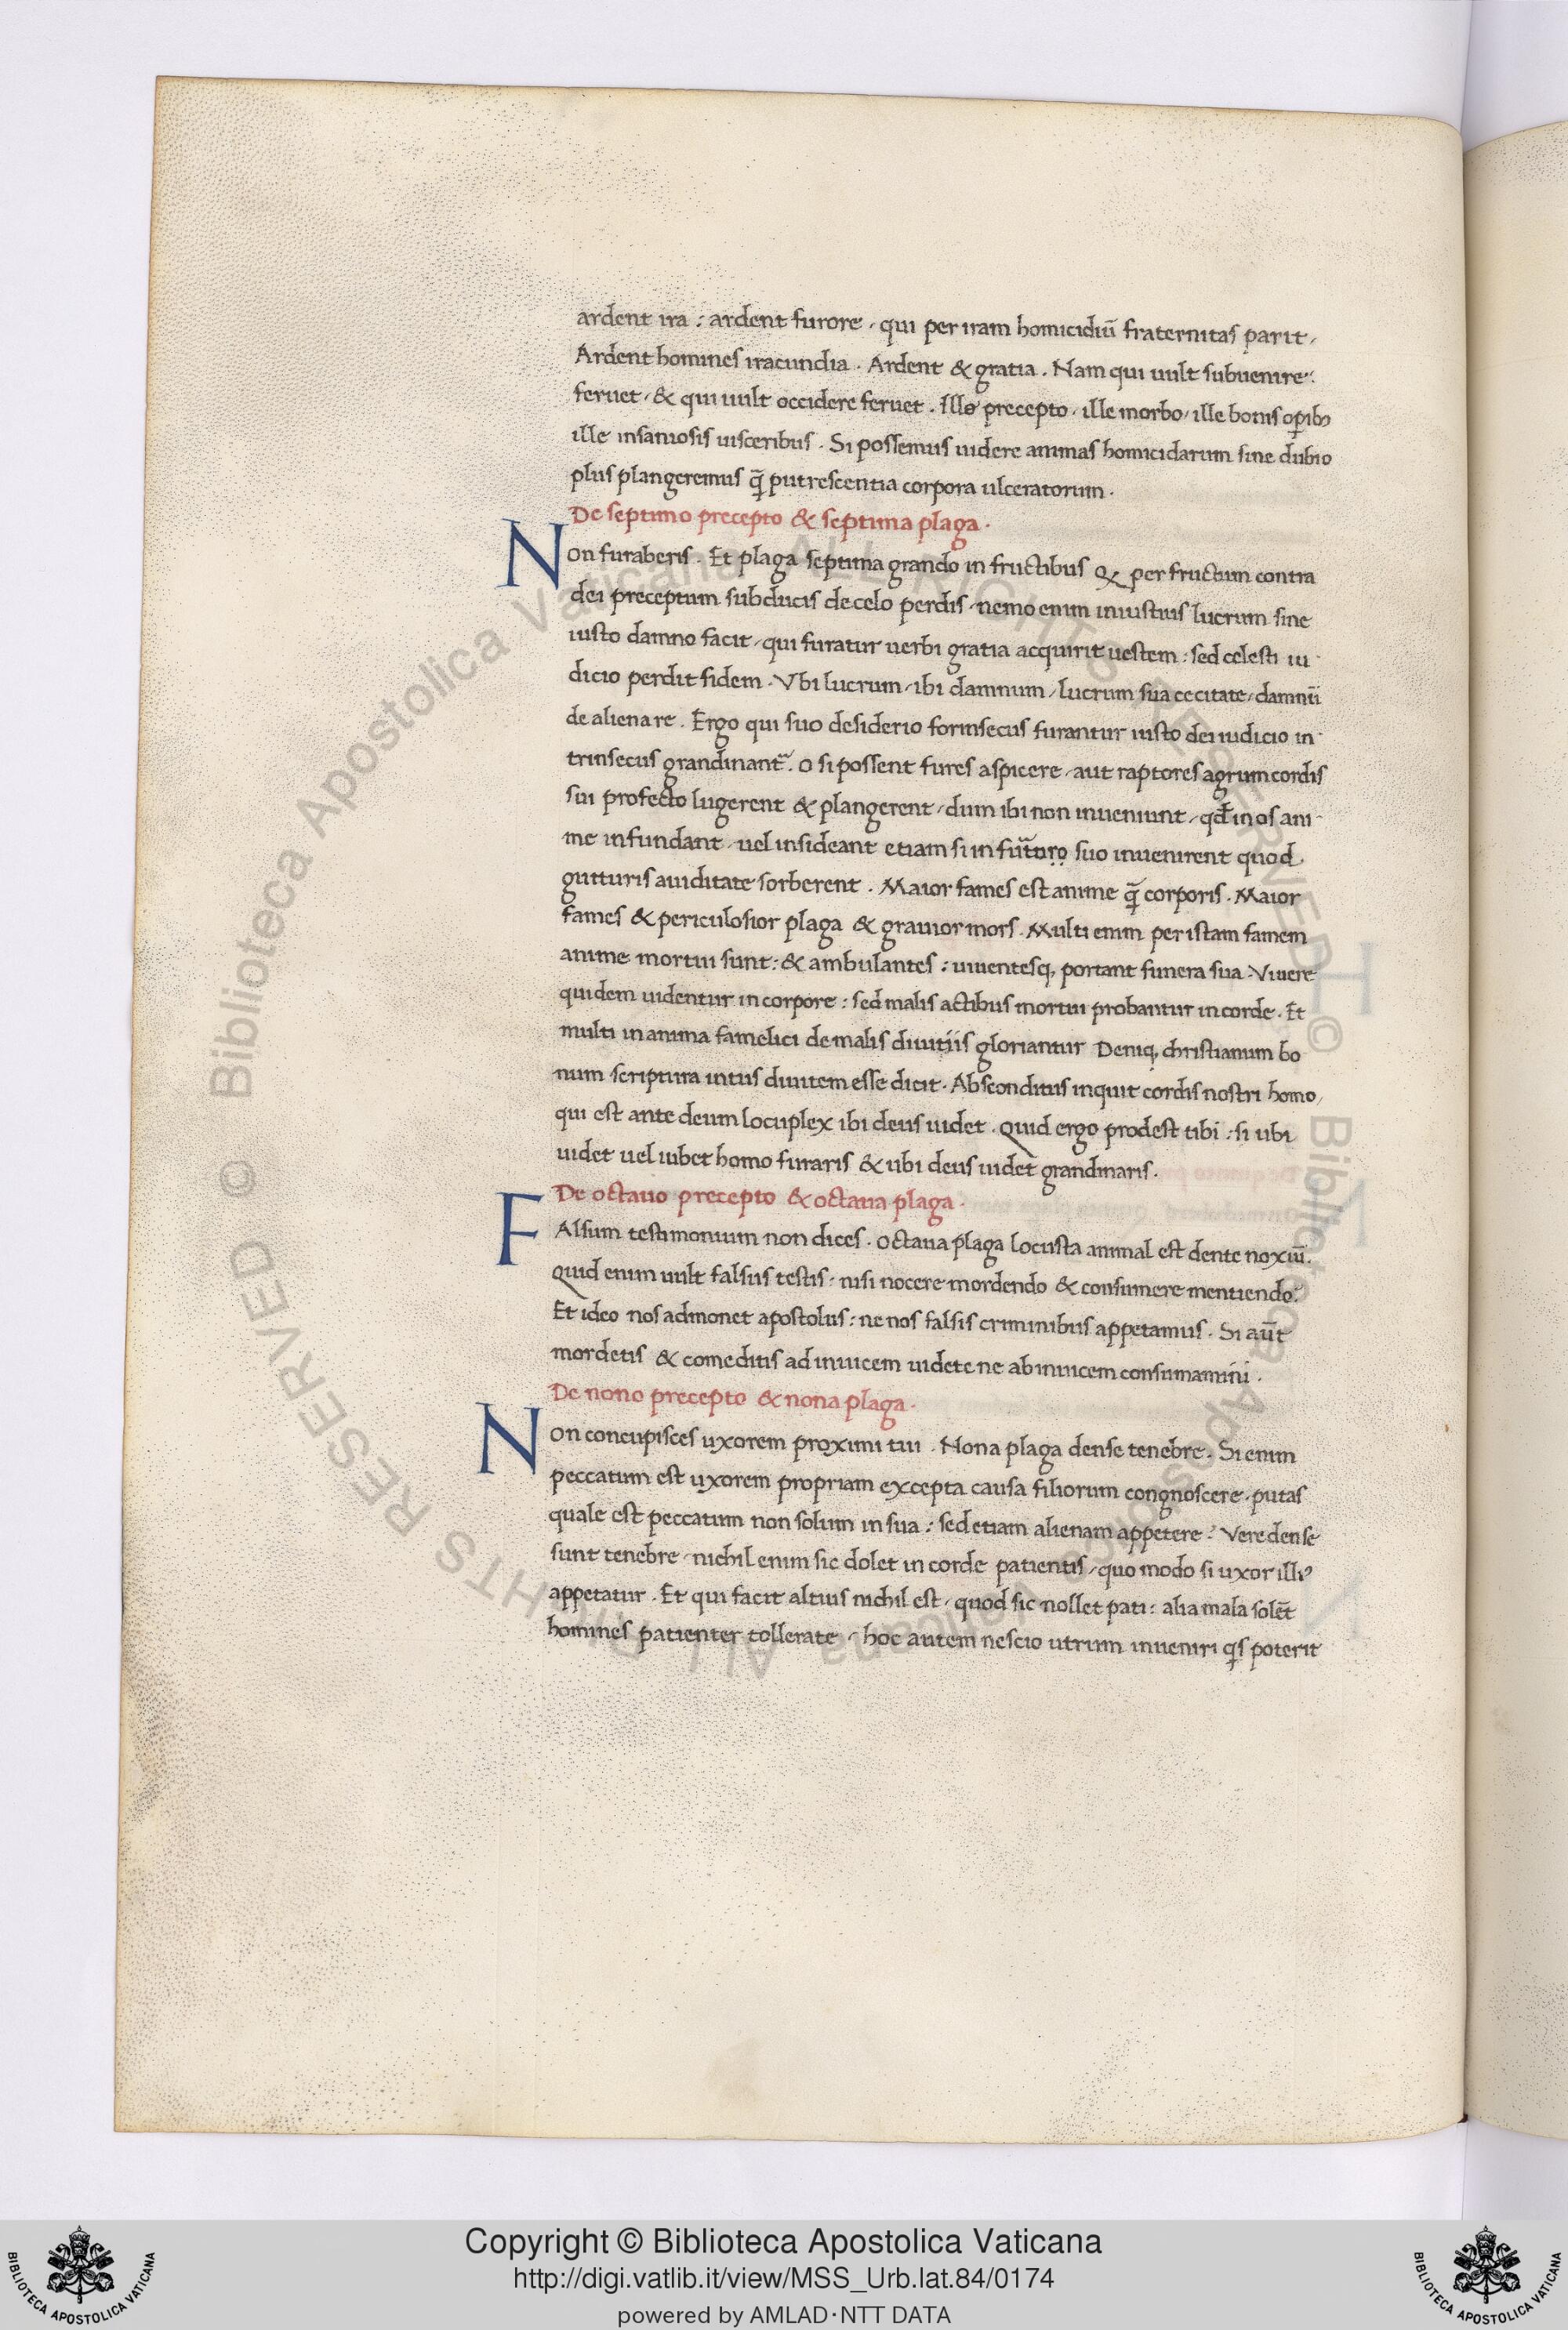 ardent ira : ardent furore , qui per iram homicidiū fraternitas parit ,
Ardent homines iracundia . Ardent & gratia . Nam qui uult subuenire .
feruet , & qui uult occidere feruet . Ille precepto , ille morbo , ille bonis opib;
ille insaniosis uisceribus . Si possemus uidere animas homicidarum sine dubio
plus plangeremus q̃ putrescentia corpora ulceratorum .
De septimo precepto & septima plaga .
Non furaberis . Et plaga septima grando in fructibus per fructum contra
dei preceptum subducis de celo perdis , nemo enim iniustius lucrum sine
iusto damno facit , qui furatur uerbi gratia acquirit uestem : sed celesti iu
dicio perdit fidem . Vbi lucrum , ibi damnum , lucrum sua cecitate , damnū
de aliena re . Ergo qui suo desiderio forinsecus furantur iusto dei iudicio in
trinsecus grandinant᷑ . O si possent fures aspicere , aut raptores agrum cordis
sui profecto lugerent & plangerent , dum ibi non inueniunt , qđ in os ani
me infundant , uel insideant etiam si in suo inuenirent quod
gutturis auiditate sorberent . Maior fames est anime q̃ corporis . Maior
fames & periculosior plaga & grauior mors . Multi enim per istam famem
anime mortui sunt : & ambulantes : uiuentesq, portant funera sua . Viuere
quidem uidentur in corpore : sed malis actibus mortui probantur in corde . Et
multi in anima famelici de malis diuitiis gloriantur Deniq, christianum bo
num scriptura intus diuitem esse dicit . Absconditus inquit cordis nostri homo ,
qui est ante deum locuplex ibi deus uidet . Quid ergo prodest tibi : si ubi
uidet uel iubet homo furaris & ubi deus uidet grandinaris .
De octauo precepto & octaua plaga .
FAlsum testimonium non dices . Octaua plaga locusta animal est dente noxiū .
Quid enim uult falsus testis : nisi nocere mordendo & consumere mentiendo ?
Et ideo nos admonet apostolus : ne nos falsis criminibus appetamus . Si aūt
mordetis & comeditis ad inuicem uidete ne ab inuicem consumamini .
De nono precepto & nona plaga .
Non concupisces uxorem proximi tui . Nona plaga dense tenebre . Si enim
peccatum est uxorem propriam excepta causa filiorum congnoscere , putas
quale est peccatum non solum in sua : sed etiam alienam appetere ? Vere dense
sunt tenebre , nichil enim sic dolet in corde patientis , quo modo si uxor illi᾽
appetatur . Et qui facit altius nichil est , quod sic nollet pati : alia mala solēt
homines patienter tollerate , hoc autem nescio utrum inueniri q̇s poterit
© Biblioteca Apostolica Vaticana ALL RIGHTS RESERVED
© Biblioteca Apostolica Vaticana ALL RIGHTS RESERVED
Copyright © Biblioteca Apostolica Vaticana
http://digi.vatlib.it/view/MSS_Urb.lat.84/0174
powered by AMLAD·NTT DATA
BIBLIOTECA APOSTOLICA VATICANA
BIBLIOTECA APOSTOLICA VATICANA